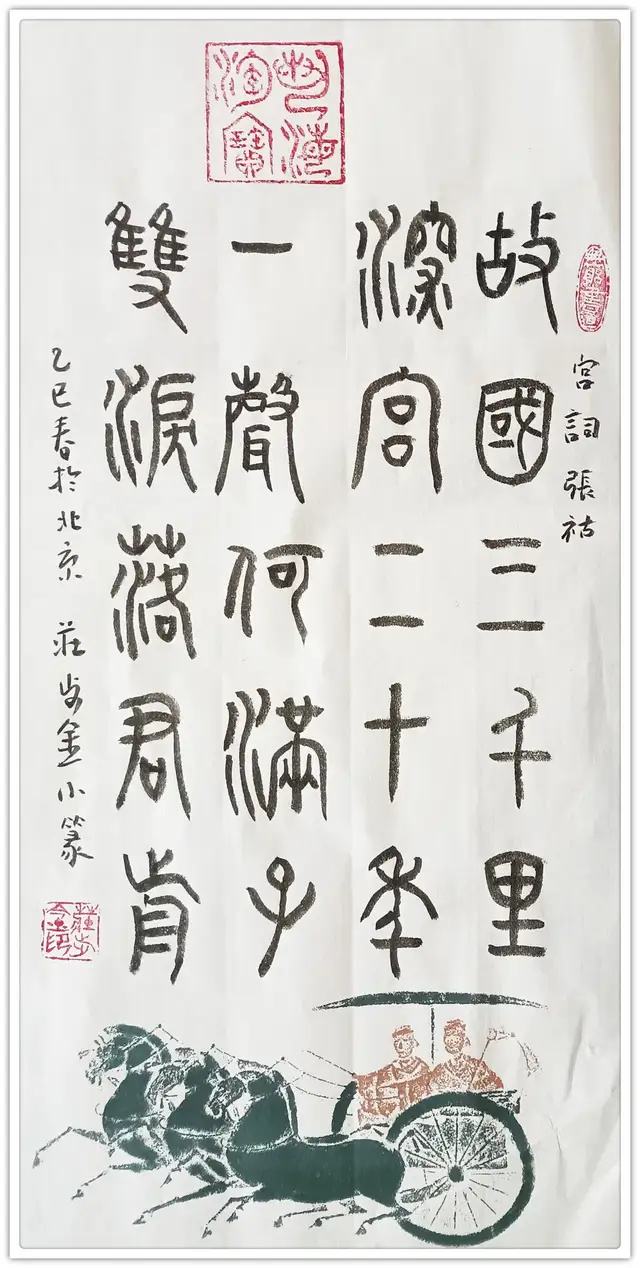 宮詞 張祜
故國三千里
深宮二十年
一聲何滿子
雙淚落君前
乙巳春於北京 莊步金小篆
莊步金印